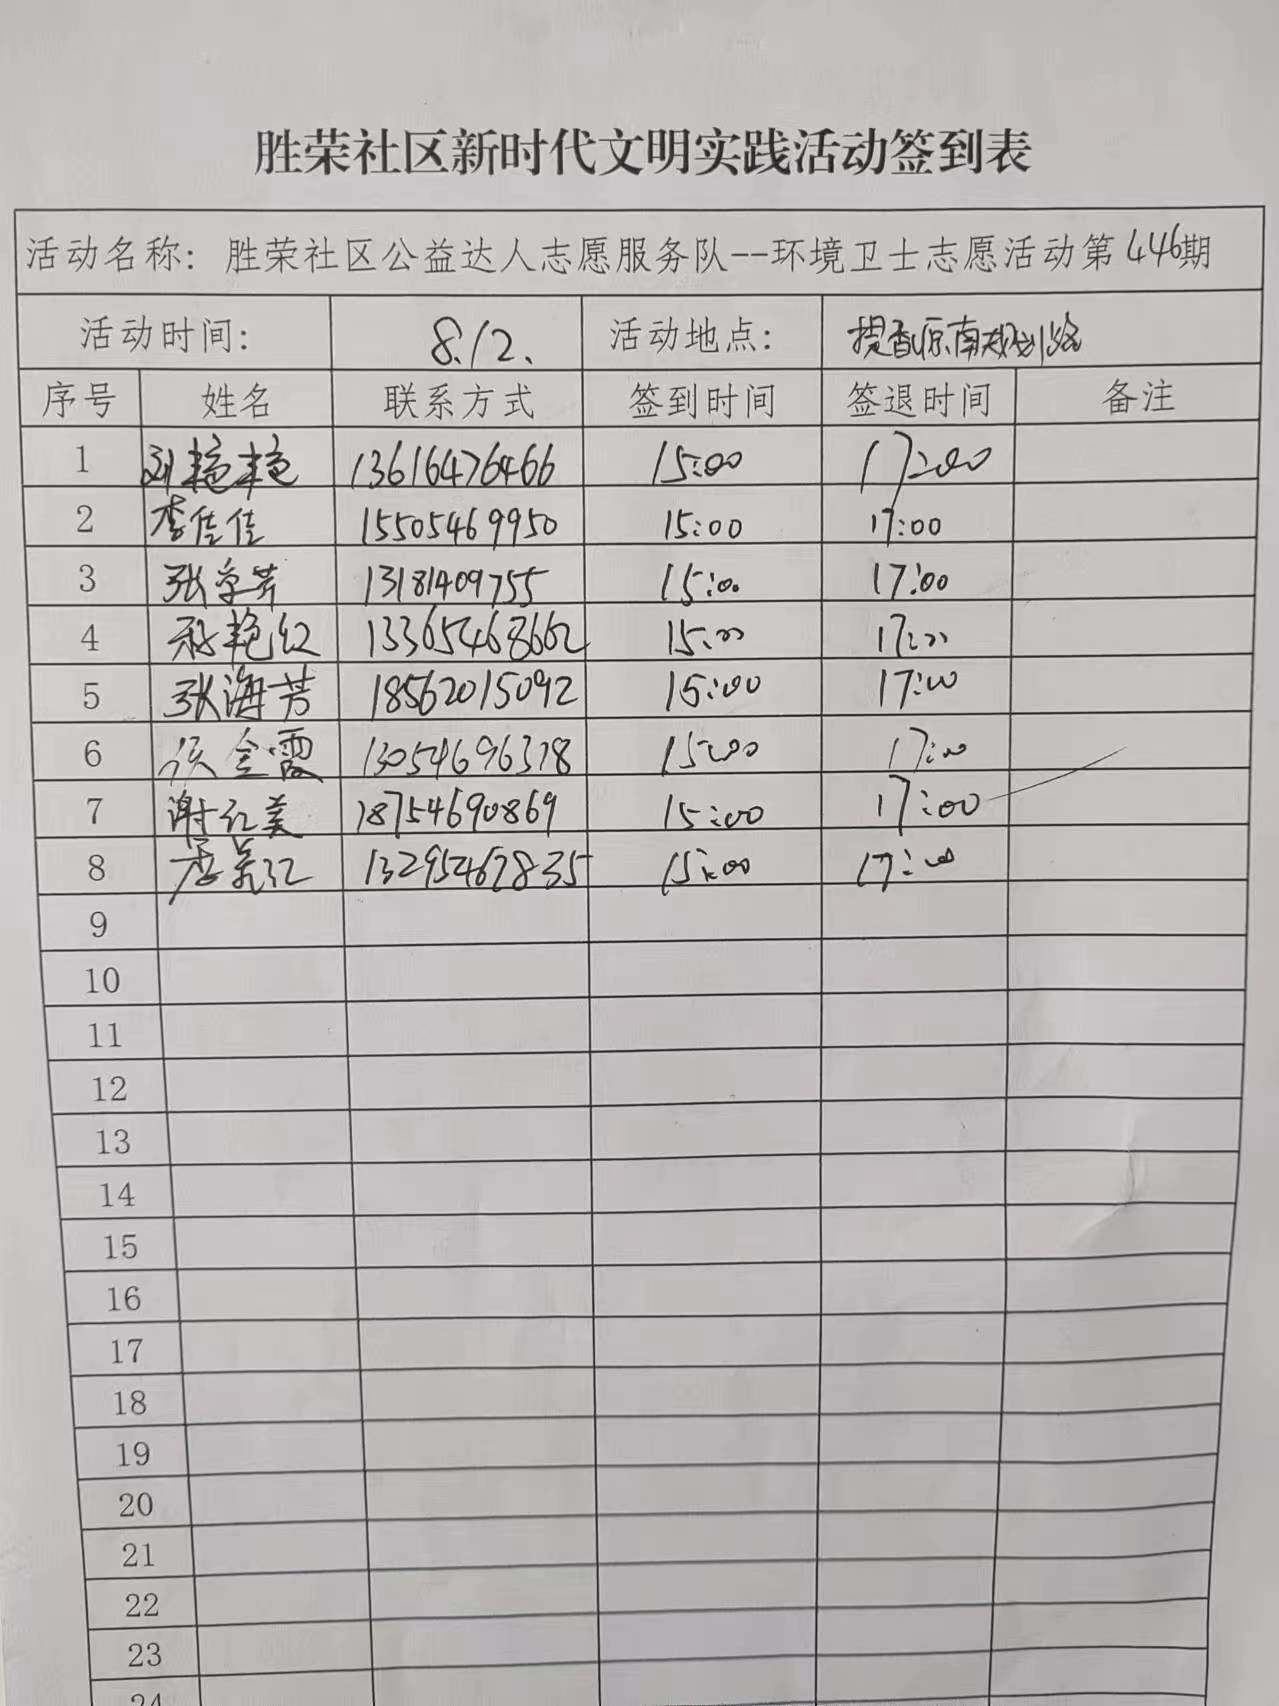 胜荣社区新时代文明实践活动签到表
活动名称：胜荣社区公益达人志愿服务队--环境卫士志愿活动第446期
活动时间： 8.12. 活动地点： 提香源南规划路
序号 姓名 联系方式 签到时间 签退时间 备注
1 刘艳艳 13616476466 15:00 17:00
2 李佳佳 15505469950 15:00 17:00
3 张 13181409755 15:00 17:00
4 艳红 13365468662 15:00 17:00
5 张海芳 18562015092 15:00 17:00
6 侯金霞 13054696378 15:00 17:00
7 谢红美 18754690869 15:00 17:00
8 13295467835 15:00 17:00
9
10
11
12
13
14
15
16
17
18
19
20
21
22
23
24